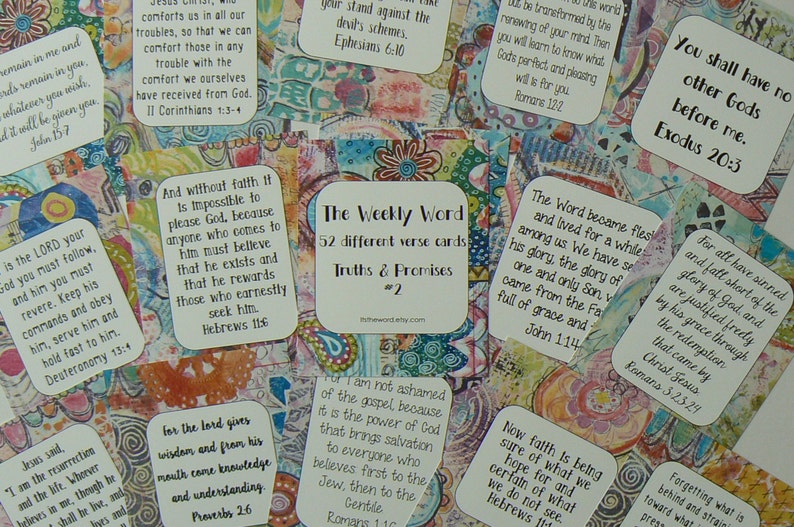 remain in me and
remain in you,
whatever you wish,
it will be given you.
John 15:7
Jesus Christ, who
comforts us in all our
troubles, so that we can
comfort those in any
trouble with the
comfort we ourselves
have received from God.
II Corinthians 1:3-4
take
your stand against the
devil's schemes.
Ephesians 6:10
this world
but be transformed by the
renewing of your mind. Then
you will learn to know what
God's perfect and pleasing
will is for you.
Romans 12:2
You shall have no
other Gods
before me.
Exodus 20:3
is the LORD your
God you must follow,
and him you must
revere. Keep his
commands and obey
him, serve him and
hold fast to him.
Deuteronomy 13:4
And without faith it
is impossible to
please God, because
anyone who comes to
him must believe
that he exists and
that he rewards
those who earnestly
seek him.
Hebrews 11:6
The Weekly Word
52 different verse cards
Truths & Promises
#2
itstheword.etsy.com
The Word became flesh
and lived for a while
among us. We have se
his glory, the glory of
one and only Son, w
came from the Fa
full of grace and
John 1:14
For all have sinned
and fall short of the
glory of God, and
are justified freely
by his grace through
the redemption
that came by
Christ Jesus.
Romans 3:23,24
Jesus said,
"I am the resurrection
and the life. Whoever
believes in me, though he
shall live, and
lives and
For the Lord gives
wisdom and from his
mouth come knowledge
and understanding.
Proverbs 2:6
For I am not ashamed
of the gospel, because
it is the power of God
that brings salvation
to everyone who
believes: first to the
Jew, then to the
Gentile
Romans 1:16
Now faith is being
sure of what we
hope for and
certain of what
we do not see.
Hebrews 11:1
Forgetting what is
behind and straining
toward what
press